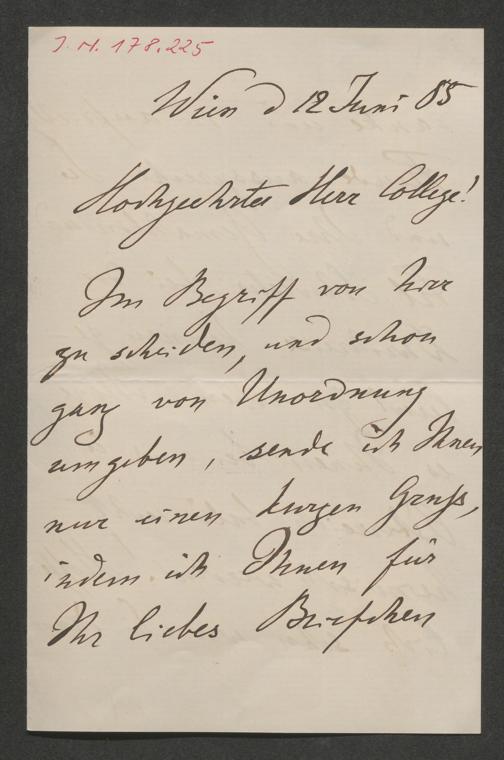 J.N. 178.225
Wien d 12 Juni 85
Hochgeehrter Herr College!
Im Begriff von hier
zu scheiden, und schon
ganz von Unordnung
umgeben, sende ich Ihnen
nur einen kurzen Gruß,
indem ich Ihnen für
Ihr liebes Briefchen